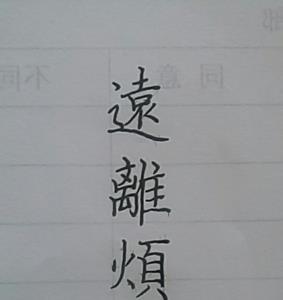 遠離煩
同意
不同
部